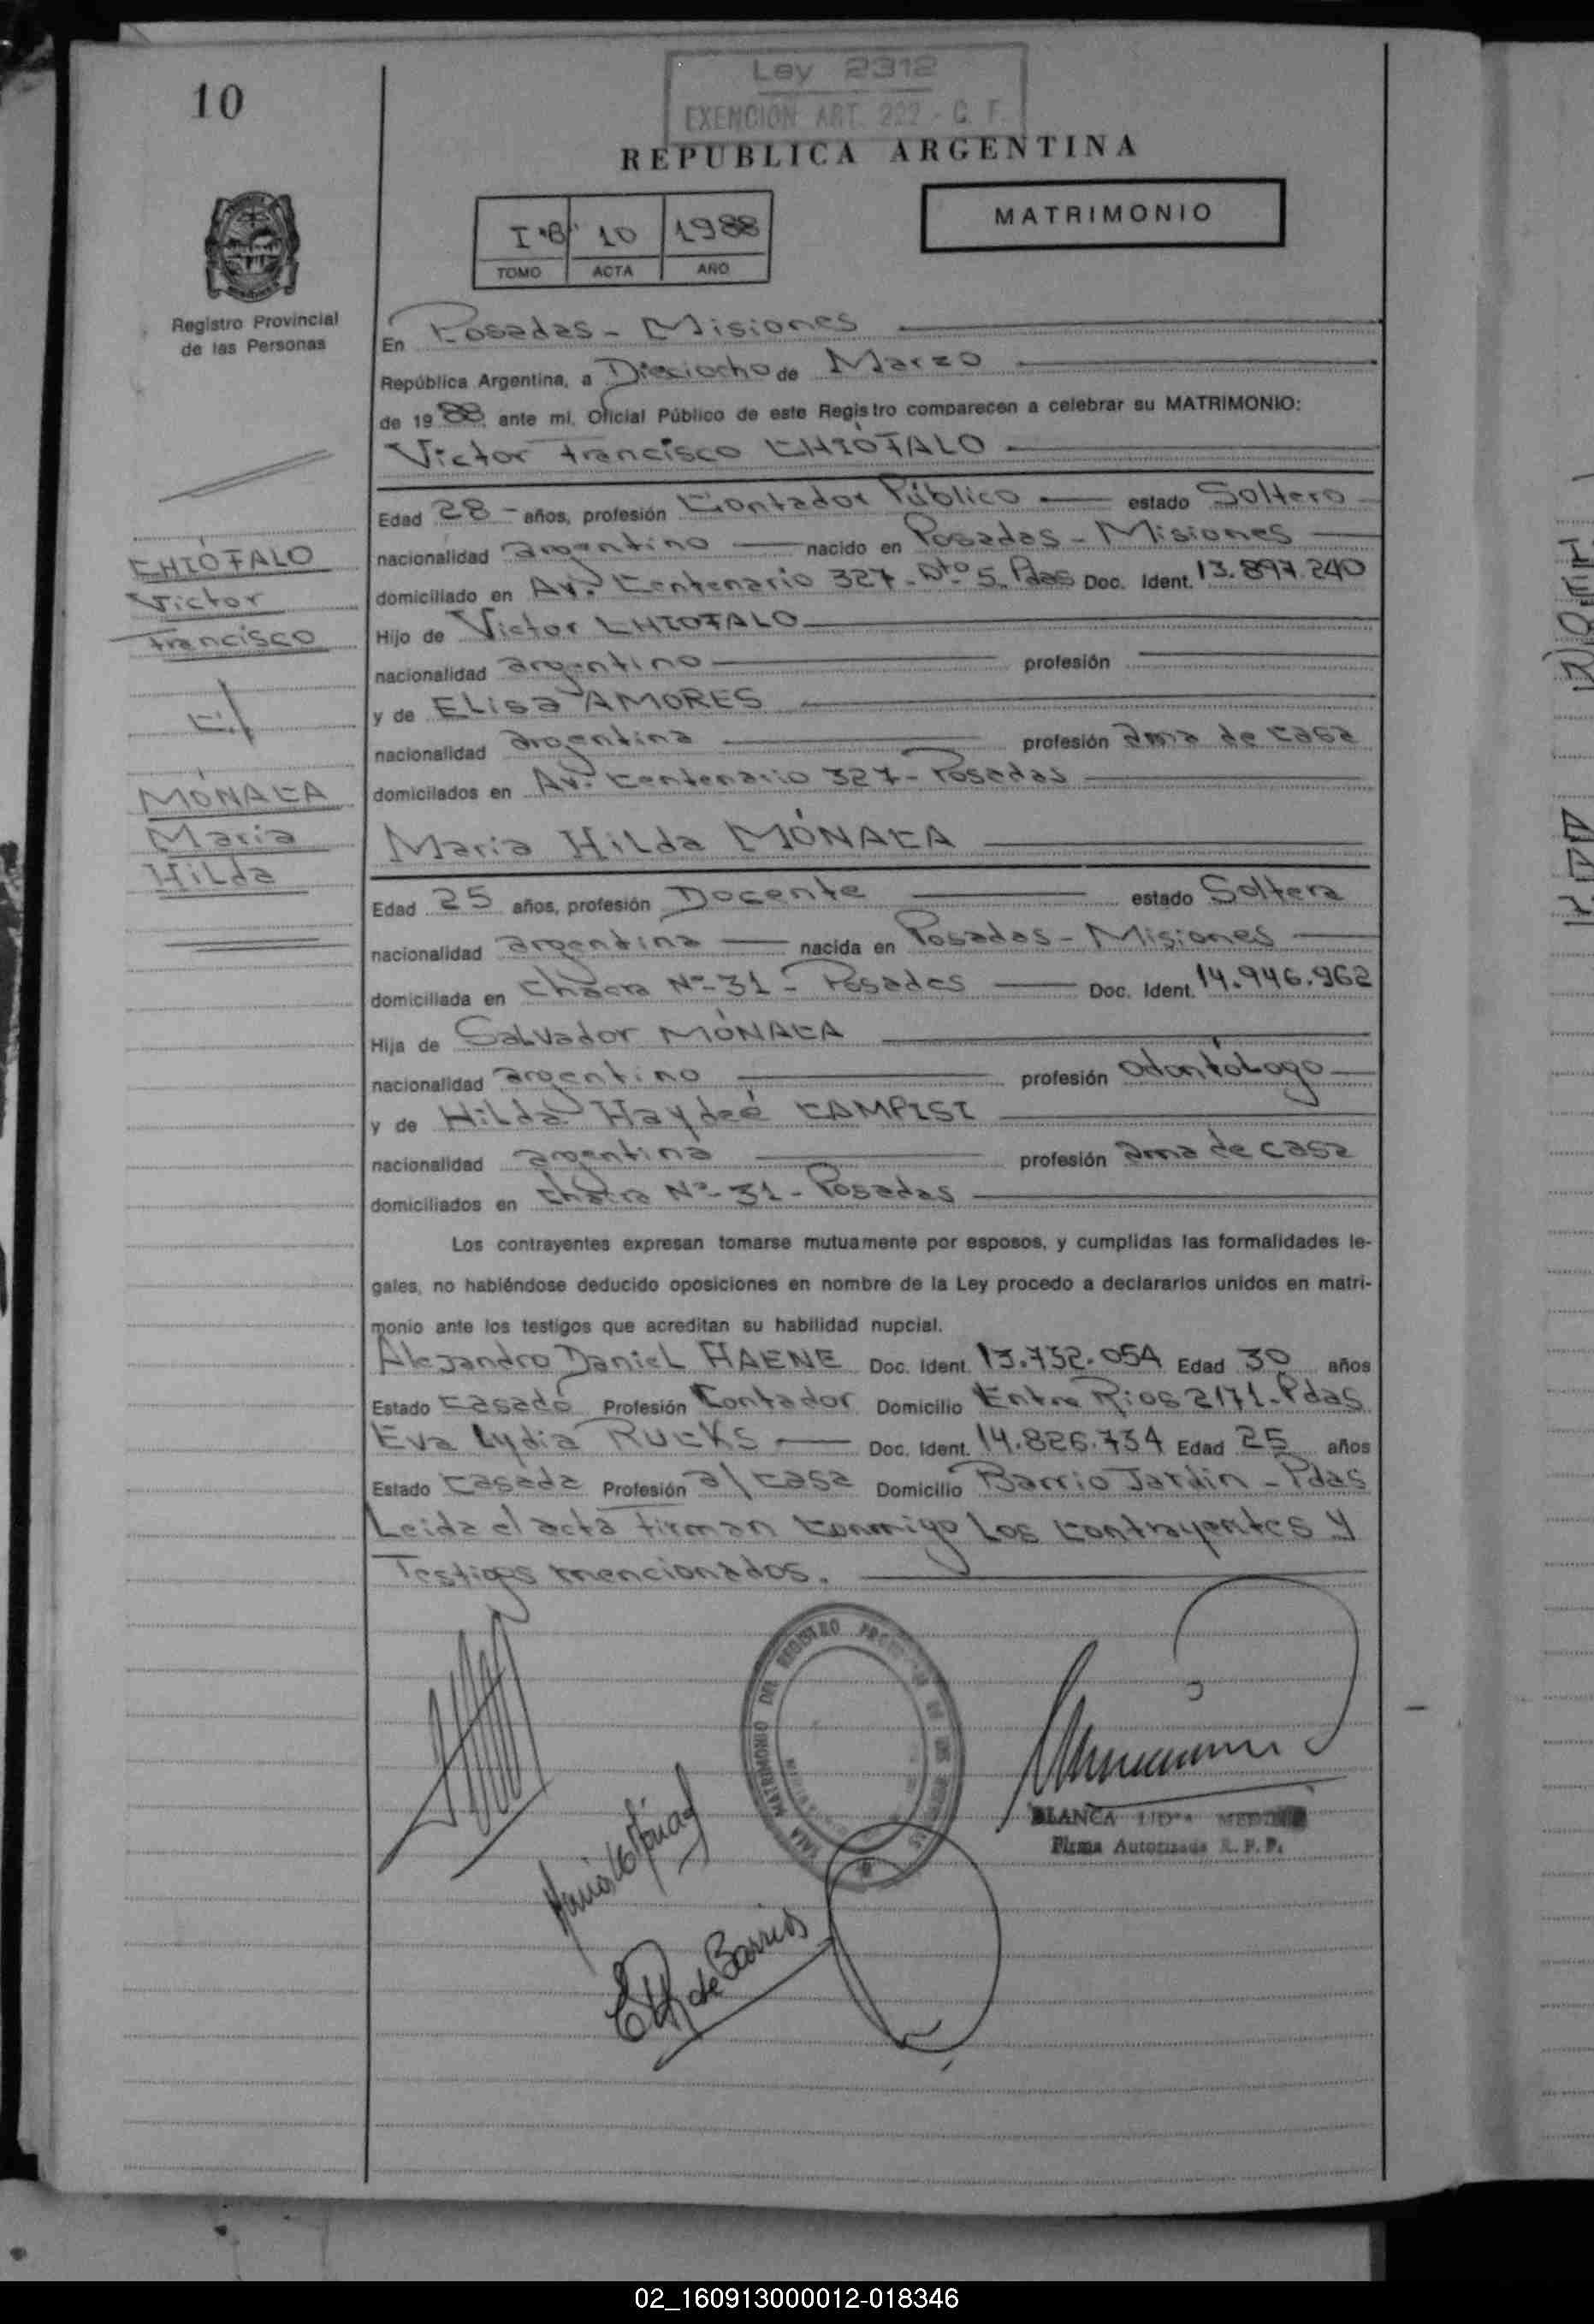 10
Ley 2312
EXENCION ART. 222 - C. F.
REPUBLICA ARGENTINA
MATRIMONIO
I "B" 10 1988
TOMO ACTA AÑO
Registro Provincial
de las Personas
En Posadas - Misiones
República Argentina, a Dieciocho de Marzo
de 1988 ante mi, Oficial Público de este Registro comparecen a celebrar su MATRIMONIO:
Victor Francisco CHIÓFALO
Edad 28 - años, profesión Contador Público estado Soltero
nacionalidad argentino nacido en Posadas - Misiones
domiciliado en Av. Centenario 327 - Dto 5. Pdas Doc. Ident. 13.897.240
Hijo de Victor CHIOFALO
nacionalidad argentino profesión
y de Elisa AMORES
nacionalidad argentina profesión ama de casa
domicilados en Av. Centenario 327 - Posadas
Maria Hilda MÓNACA
Edad 25 años, profesión Docente estado Soltera
nacionalidad argentina nacida en Posadas - Misiones
domiciliada en Chacra Nº 31 - Posadas Doc. Ident. 14.946.962
Hija de Salvador MÓNACA
nacionalidad argentino profesión odontólogo
y de Hilda Haydeé CAMPISI
nacionalidad argentina profesión ama de casa
domiciliados en chacra Nº 31 - Posadas
Los contrayentes expresan tomarse mutuamente por esposos, y cumplidas las formalidades le-
gales, no habiéndose deducido oposiciones en nombre de la Ley procedo a declararlos unidos en matri-
monio ante los testigos que acreditan su habilidad nupcial.
Alejandro Daniel HAENE Doc. Ident. 13.732.054 Edad 30 años
Estado Casado Profesión Contador Domicilio Entre Rios 2171 - Pdas
Eva Lydia RUCKS Doc. Ident. 14.826.734 Edad 25 años
Estado Casada Profesión a/ casa Domicilio Barrio Jardin - Pdas
Leida el acta firman conmigo los contrayentes y
Testigos mencionados.
CHIÓFALO
Victor
Francisco
c/
MÓNACA
Maria
Hilda
SALA MATRIMONIO DEL REGISTRO
BLANCA
Firma Autorizada R. P. P.
de Barrios
02_160913000012-018346